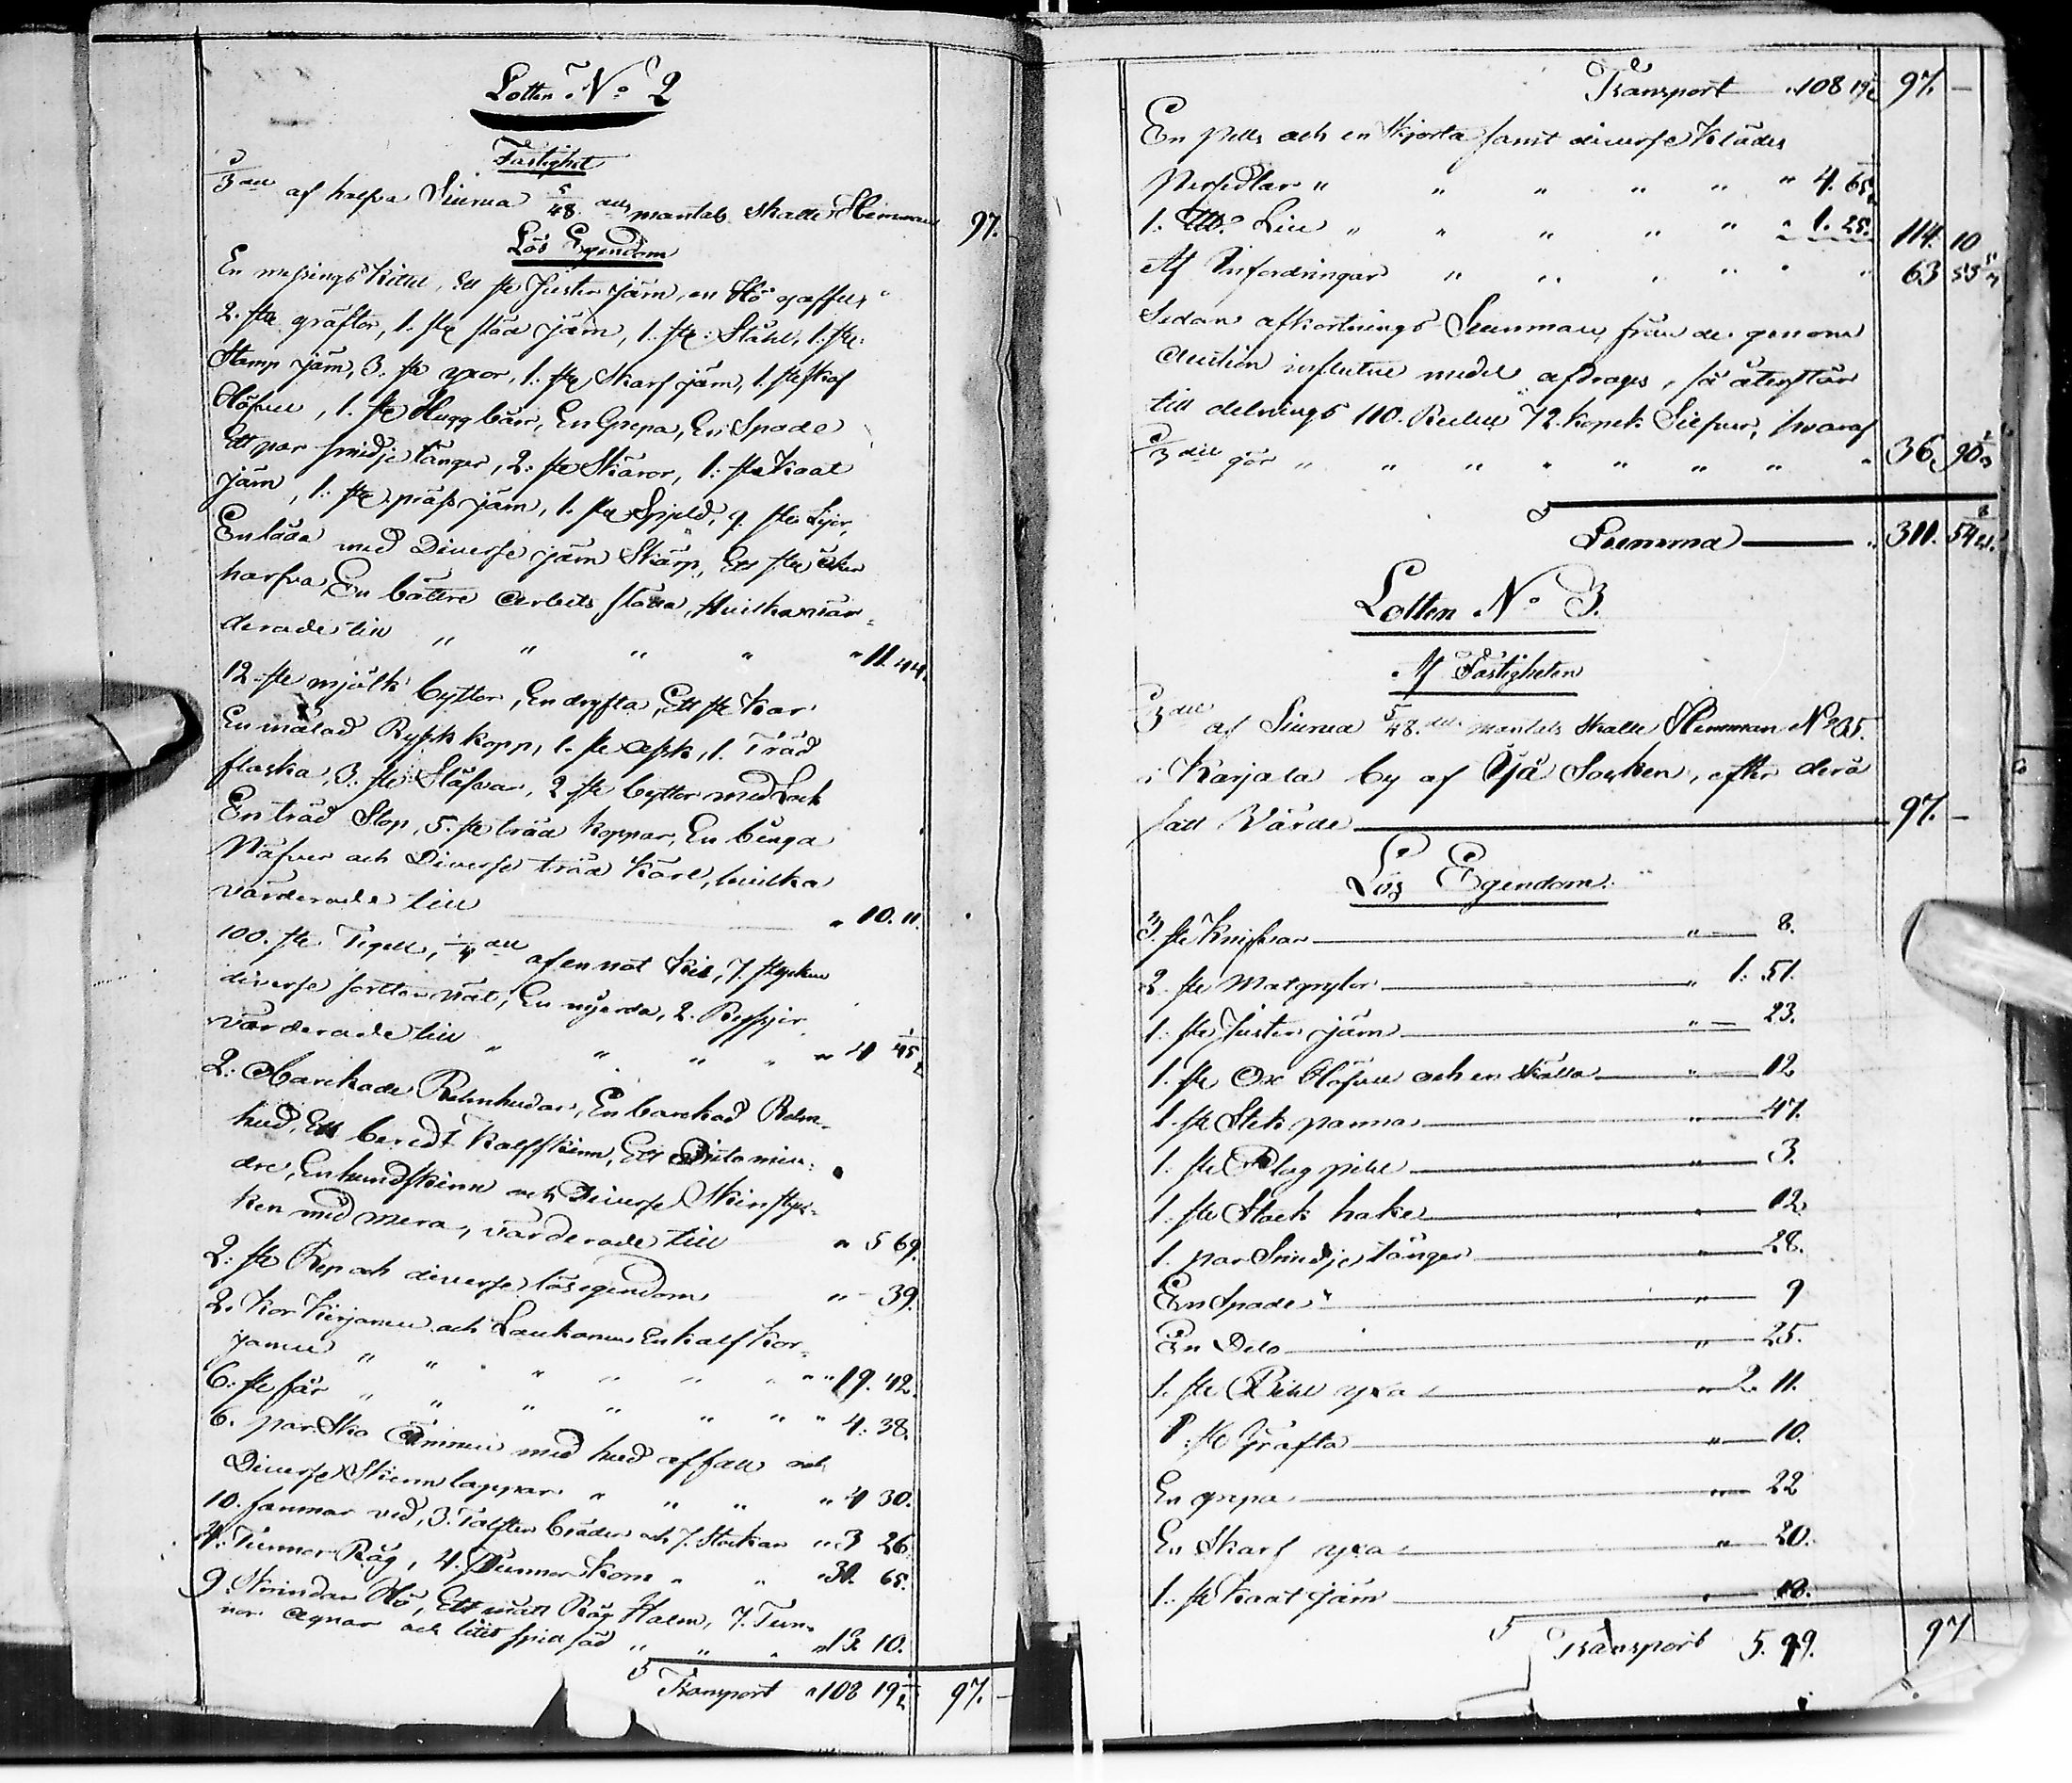 Lotten No 2
Fastighet
1/3 del af halfva Siuma 5/48 dels mantals skatte Hemman 97.
Lös Egendom
En mässings Kittel, Ett st Juster järn, en Hö gaffel,
2. st gräftor, 1. st städ järn, 1. st: Ståhl, 1. st:
Stamp järn, 3. st yxor, 1: st Skarf järn, 1. st Skaf
Höfvel, 1. st Hugg bärr, En Grepa, En Spade
Ett par smidje tänger, 2: st Skäror, 1: st Kaat
järn, 1: st präss järn, 1. st Spjeld, 9. st Lijer,
En låda med Diverse järn Skärp, Ett st åker
harfva, En bättre Arbets släda, Hvilka vär-
derades till " " " " " 11. 44.
12. st mjölk byttor, En dryfta, Ett st Kar
En målad Rysk kopp, 1. st ask, 1. Träd
flaska, 3. st Stäfvar, 2 st byttor med Lock
En träd Stop, 5. st träd koppar, En bunga
Näfver och Diverse träd Kärl, hvilka
värderades till " 10. 11.
100. st Tegell, 1/4 del af en not Kil, 7. stycken
diverse sorter nät, En mjerda, 2. Ryssjor
värderade till " " " " " 4 45 1/2
2: Barkade Relmhudar, En barkad Relm-
hud, Ett beredt Kalfskinn, Ett Dito min-
dre, En hundskinn och Diverse Skinstyc-
ken med mera, värderade till " 5 69.
2: st Rep och diverse lösegendom " - 39.
2. Kor Kirjanen och Laukanen En kalf Kor-
janen " " " " " " " 19. 42.
6: st får " " " " " " " 4: 38.
6. par Sko Ämnen med hud affall och
Diverse Skinn lappar " " " " 4 30.
10. famnar ved, 3. Tolfter bräder och 7. Stockar " 3 26
4. Tunnor Råg, 4. Tunnor Korn " " " 30. 65.
9. Skrindar Hö, Ett mått Råg Halm, 7. Tun-
nor Agnar och litet spid säd " " " 13. 10.
Transport " 108 19 1/2 97. -
Transport " 108 19 1/2 97. -
En pells och en Skjorta samt diverse Klädes
persedlar " " " " " " 4. 65 1/2
1. lb Lin " " " " " " 1. 25. 114. 10
Af Infordringar " " " " " " " 63 55 5/7
Sedan afkortnings Summan, från de genom
Auction influtne medel afdrages, så återstår
till delnings 110. Rubel 72. kopek Silfver, hvaraf
1/3 del gör " " " " " " " " 36. 90 2/3
Summa 311. 54 8/21.
Lotten No 3.
Af Fastigheten
1/3 del af Siuma 5/48. dels mantals Skatte Hemman No 35.
i Karjala by af Äjä Socken, efter derå
satt Värde 97. -
Lös Egendom.
3. st Knifvar " - 8.
2. st Matgrytor " 1: 51.
1. st Juster järn " - 23.
1. st Ox Höfvel och en Skålla " - 12
1. st Stek panna " 47.
1. st Plog pihl " 3.
1. st Stock hake " 12
1. par Smidje tänger " 28.
En Spade " 9
En Delo " 25.
1. st Bihl yxa " 2. 11.
1. st Gräfta " 10.
En grepa " 22
En Skarf yxa " 20.
1. st Kaat järn " 18.
Transport 5. 99. 97